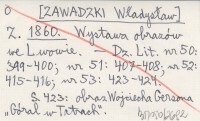 [ZAWADZKI Władysław]
Z. 1860. Wystawa obrazów
we Lwowie. Dz. Lit. nr 50:
399-400; nr 51: 407-408; nr 52:
415-416; nr 53: 423-424.
S. 423: obraz Wojciecha Gersona
„Góral w Tatrach".